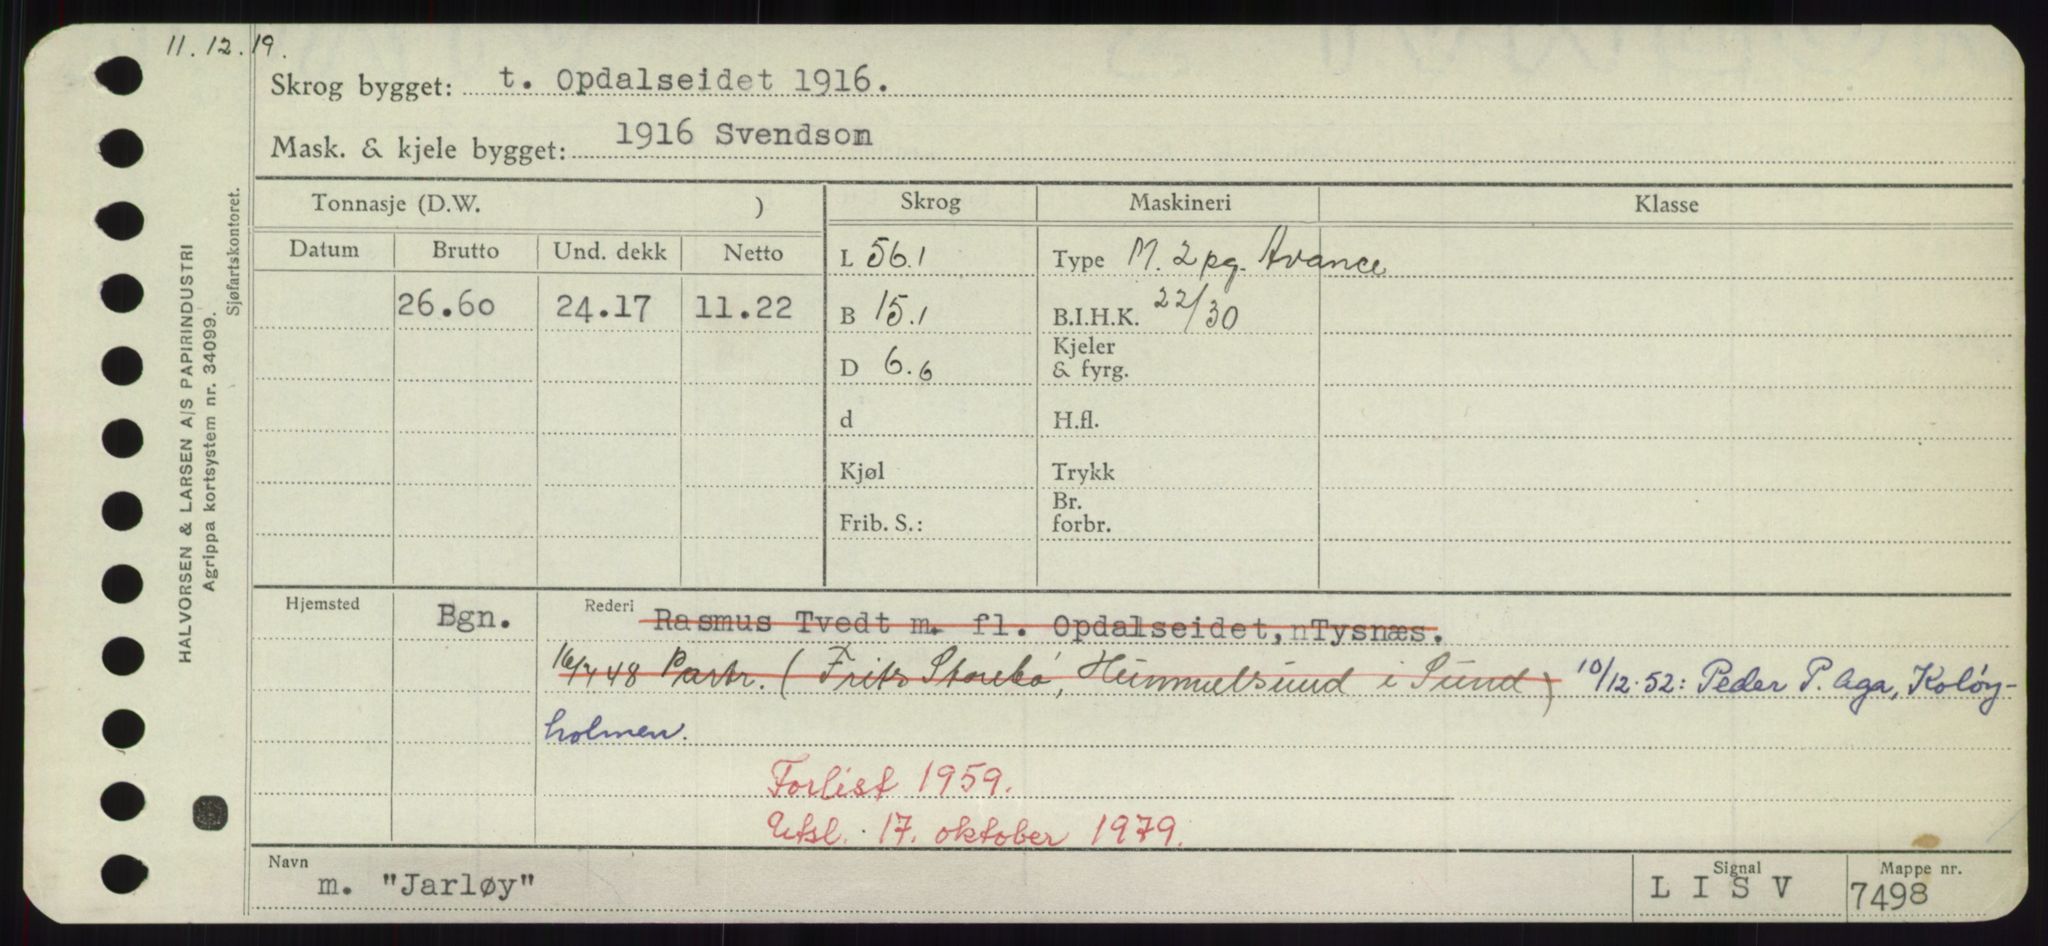 11.12.19.
Skrog bygget: t. Opdalseidet 1916.
Mask. & kjele bygget: 1916 Svendson
Tonnasje (D.W. ) Skrog Maskineri Klasse
Datum Brutto Und. dekk Netto L 56.1 Type M. 2 pg. Avance
26.60 24.17 11.22 B 15.1 B.I.H.K. 22/30
D 6.6 Kjeler
& fyrg.
d H.fl.
Kjøl Trykk
Br.
Frib. S.: forbr.
Hjemsted Bgn. Rederi Rasmus Tvedt m. fl. Opdalseidet, nTysnæs.
48 Partr. (Frits Storebø, Hummelsund i Sund) 10/12-52: Peder P. Aga, Koløy-
holmen.
Forlist 1959.
Utsl. 17. oktober 1979.
Navn m. "Jarløy" Signal L I S V Mappe nr. 7498
HALVORSEN & LARSEN A/S PAPIRINDUSTRI
Agrippa kortsystem nr. 34099.
Sjøfartskontoret.